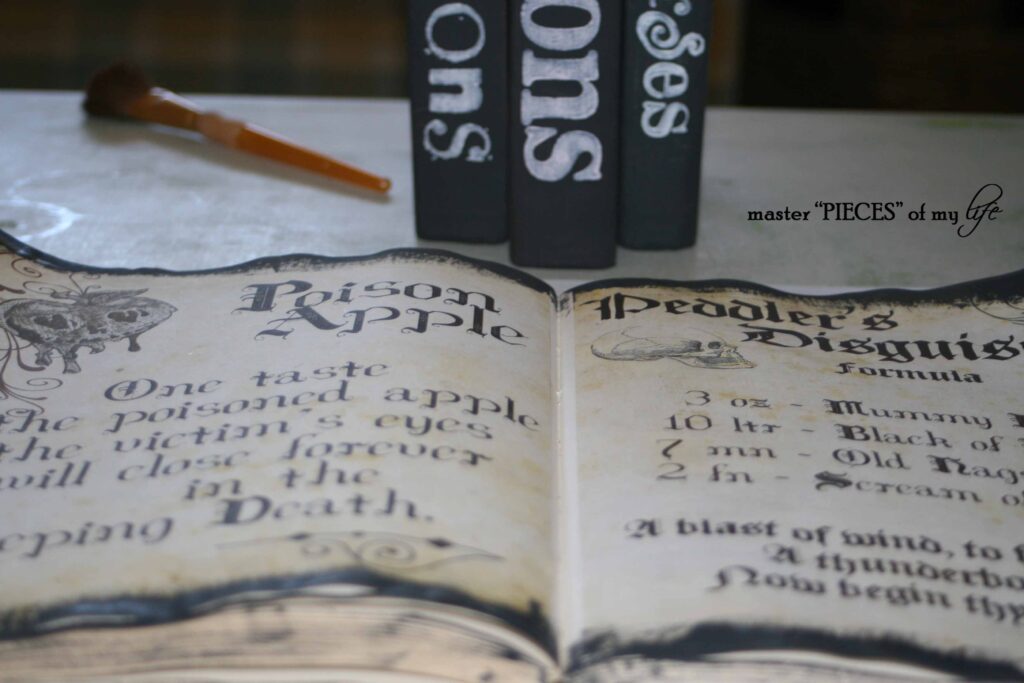 ons
ses
master “PIECES” of my life
Poison
Apple
One taste
the poisoned apple
the victim's eyes
will close forever
in the
eping Death.
Peddler's
Disguis
Formula
3 oz - Mummy
10 ltr - Black of
7 mn - Old Hag
2 fn - Scream o
A blast of wind, to
A thunderbo
Now begin thy